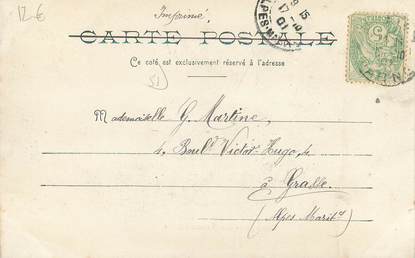 12-E
Imprimé,
CARTE POSTALE
Ce coté est exclusivement réservé à l'adresse
51
Mademoiselle G. Martine,
Bould Victor-Hugo,
à Grasse.
(Alpes Maritmes)
15
17
01
5